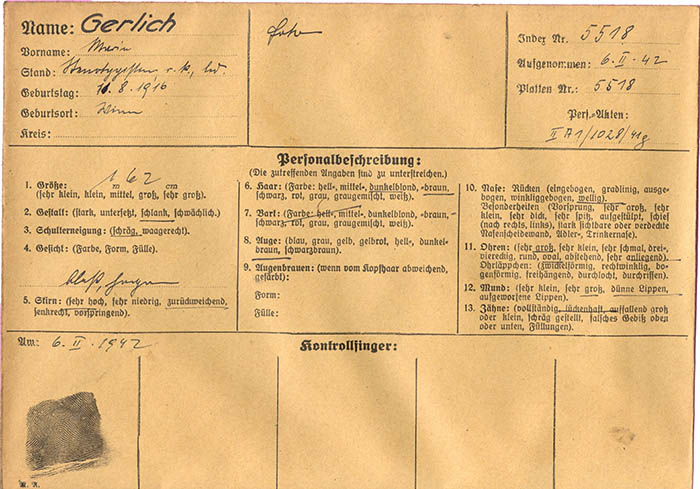 Name: Gerlich
Vorname: Maria
Stand: Stenotypistin, r. k., led.
Geburtstag: 11.8.1916
Geburtsort: Wien
Kreis:
Foto
Index Nr. 5518
Aufgenommen: 6. II. 42
Platten Nr.: 5518
Pers.-Akten:
II A1/1028/41g
Personalbeschreibung:
(Die zutreffenden Angaben sind zu unterstreichen.)
1. Größe: 1 62
m cm
(sehr klein, klein, mittel, groß, sehr groß).
2. Gestalt: (stark, untersetzt, schlank, schwächlich.)
3. Schulterneigung: (schräg, waagerecht.)
4. Gesicht: (Farbe, Form, Fülle).
blaß,
5. Stirn: (sehr hoch, sehr niedrig, zurückweichend,
senkrecht, vorspringend).
6. Haar: (Farbe: hell-, mittel-, dunkelblond, -braun,
schwarz, rot, grau, graugemischt, weiß).
7. Bart: (Farbe: hell-, mittel-, dunkelblond, -braun,
schwarz, rot, grau, graugemischt, weiß).
8. Auge: (blau, grau, gelb, gelbrot, hell-, dunkel-
braun, schwarzbraun).
9. Augenbrauen: (wenn vom Kopfhaar abweichend,
gefärbt):
Form:
Fülle:
10. Nase: Rücken (eingebogen, gradlinig, ausge-
bogen, winkliggebogen, wellig).
Besonderheiten (Vorsprung, sehr groß, sehr
klein, sehr dick, sehr spitz, aufgestülpt, schief
(nach rechts, links), stark sichtbare oder verdeckte
Nasenscheidewand, Adler-, Trinkernase).
11. Ohren: (sehr groß, sehr klein, sehr schmal, drei-,
viereckig, rund, oval, abstehend, sehr anliegend).
Ohrläppchen: (zwickelförmig, rechtwinklig, bo-
genförmig, freihängend, durchlocht, durchrissen).
12. Mund: (sehr klein, sehr groß, dünne Lippen,
aufgeworfene Lippen).
13. Zähne: (vollständig, lückenhaft, auffallend groß
oder klein, schräg gestellt, falsches Gebiß oben
oder unten, Füllungen).
Am: 6. II. 1942
Kontrollfinger: